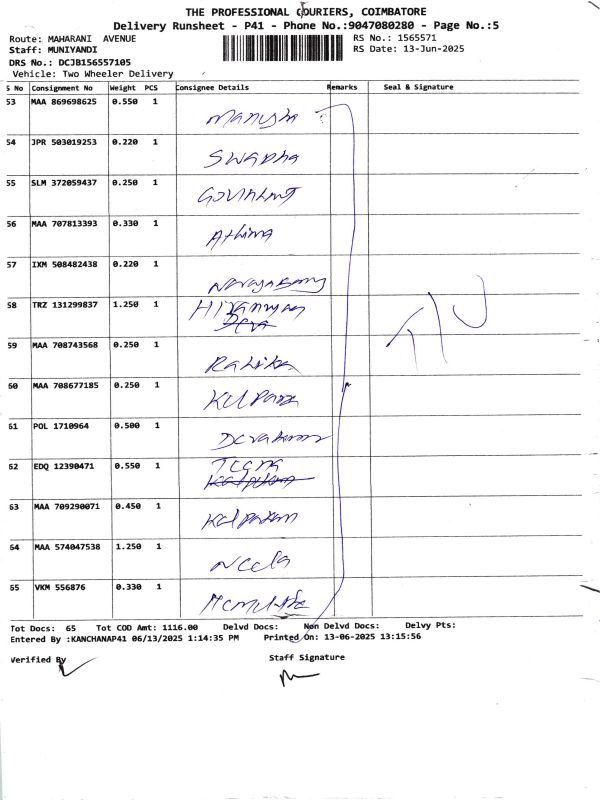 THE PROFESSIONAL COURIERS, COIMBATORE
Delivery Runsheet - P41 - Phone No.:9047080280 - Page No.:5
Route: MAHARANI AVENUE
RS No.: 1565571
Staff: MUNIYANDI
RS Date: 13-Jun-2025
DRS No.: DCJB156557105
Vehicle: Two Wheeler Delivery
S No Consignment No Weight PCS Consignee Details Remarks Seal & Signature
53 MAA 869698625 0.550 1 Manisha
54 JPR 503019253 0.220 1 Swapna
55 SLM 372059437 0.250 1
56 MAA 707813393 0.330 1 Athima
57 IXM 508482438 0.220 1 Narayasamy
58 TRZ 131299837 1.250 1
59 MAA 708743568 0.250 1
60 MAA 708677185 0.250 1
61 POL 1710964 0.500 1
62 EDQ 12390471 0.550 1
63 MAA 709290071 0.450 1
64 MAA 574047538 1.250 1 Neela
65 VKM 556876 0.330 1
Tot Docs: 65 Tot COD Amt: 1116.00 Delvd Docs: Non Delvd Docs: Delvy Pts:
Entered By :KANCHANAP41 06/13/2025 1:14:35 PM Printed On: 13-06-2025 13:15:56
Verified By
Staff Signature